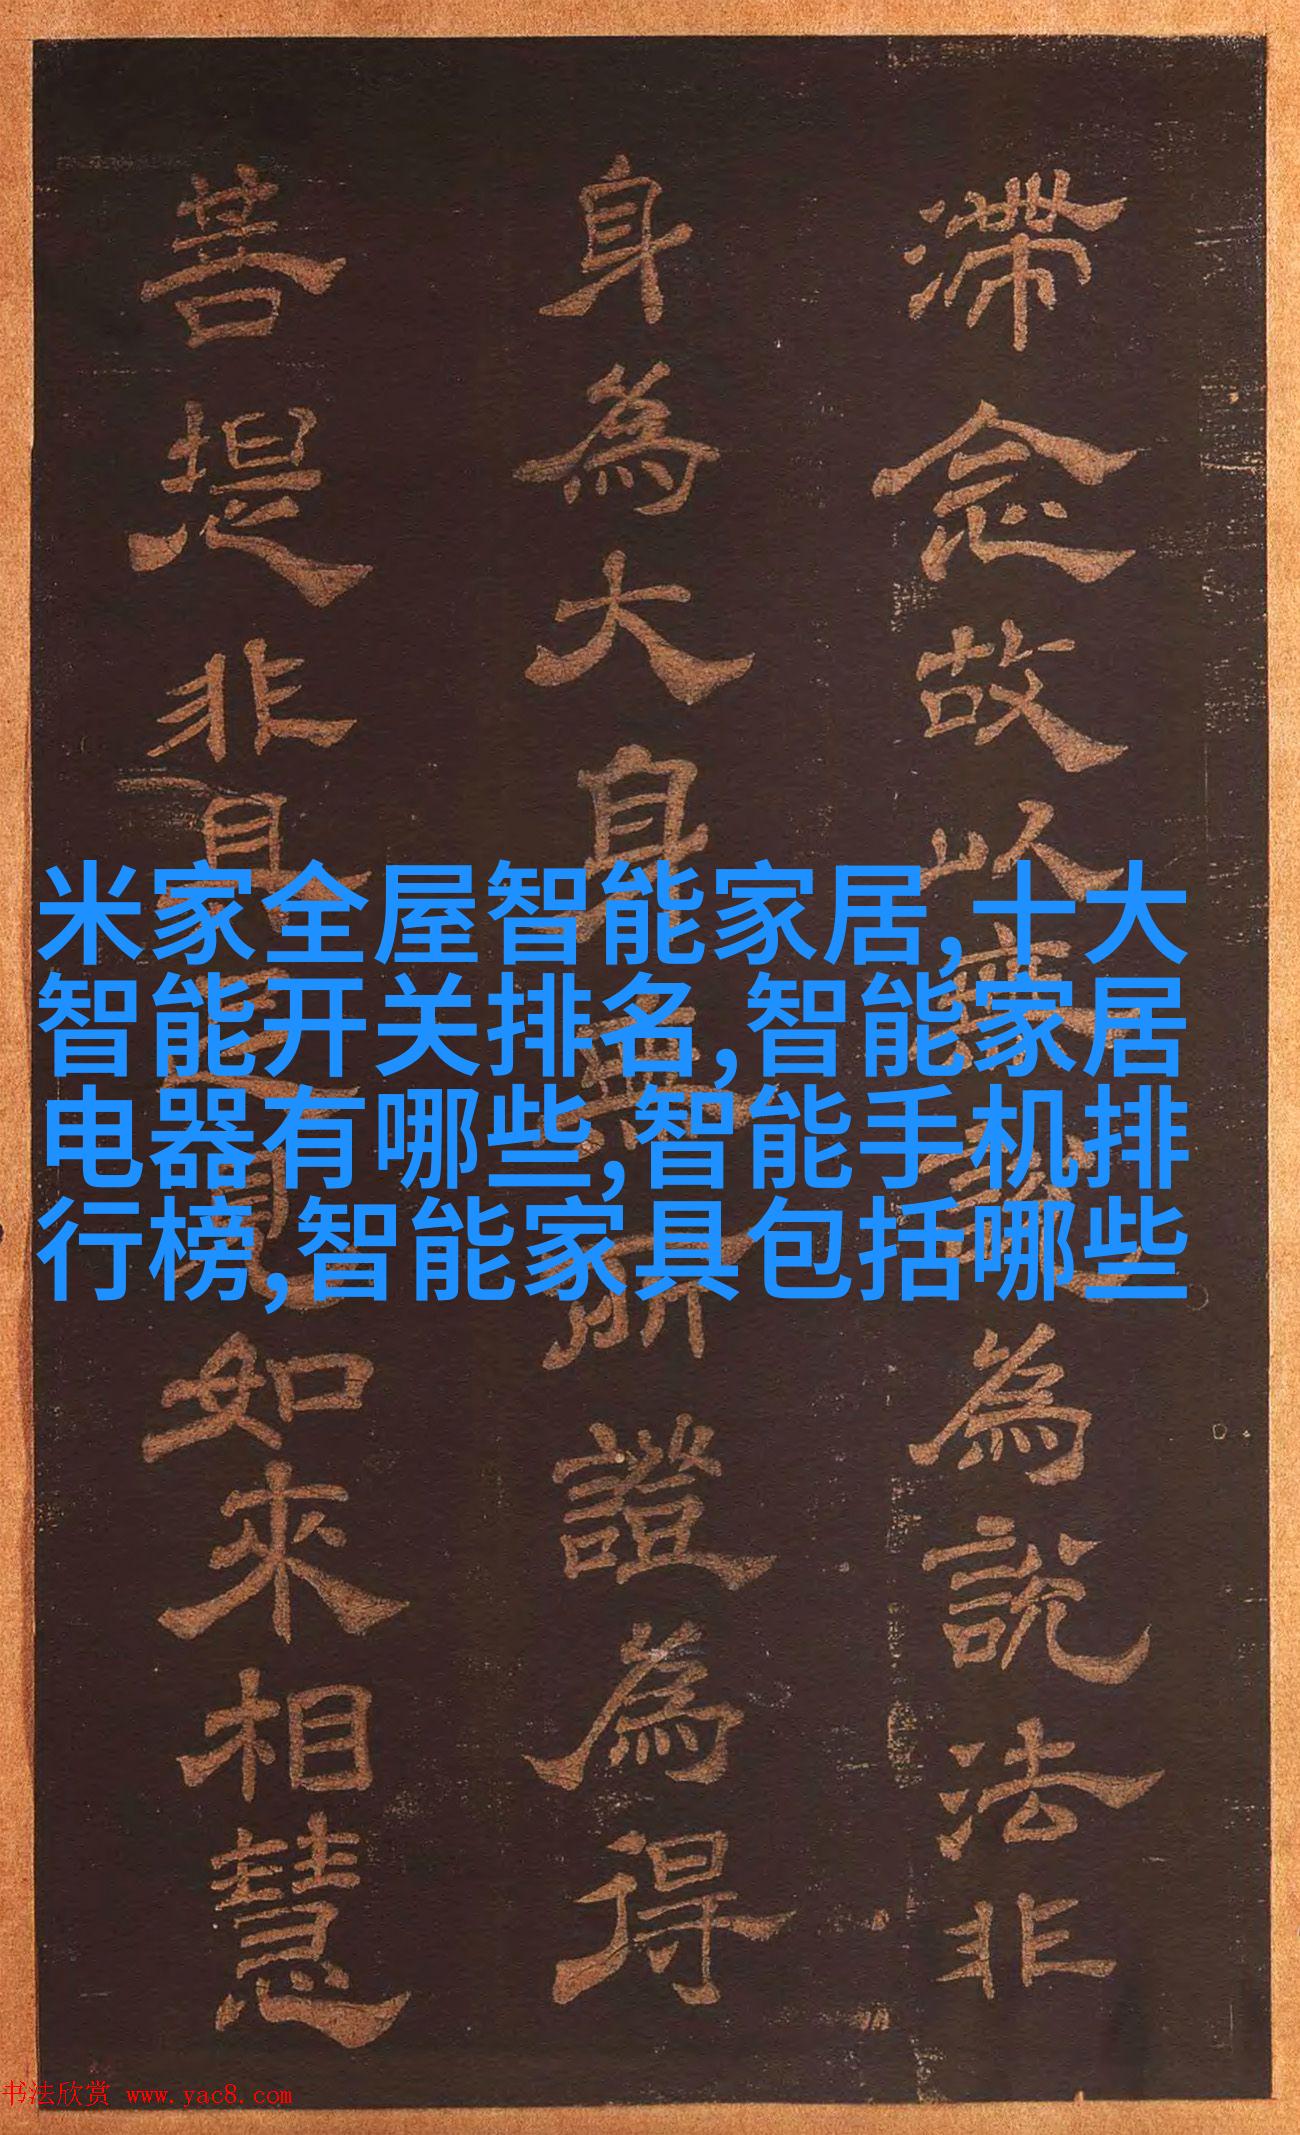 滯念故以無說為說法非
身為大身無所證為得
菩提非具足見如來相慧
米家全屋智能家居,十大
智能开关排名,智能家居
电器有哪些,智能手机排
行榜,智能家具包括哪些
书法欣赏 www.yac8.com